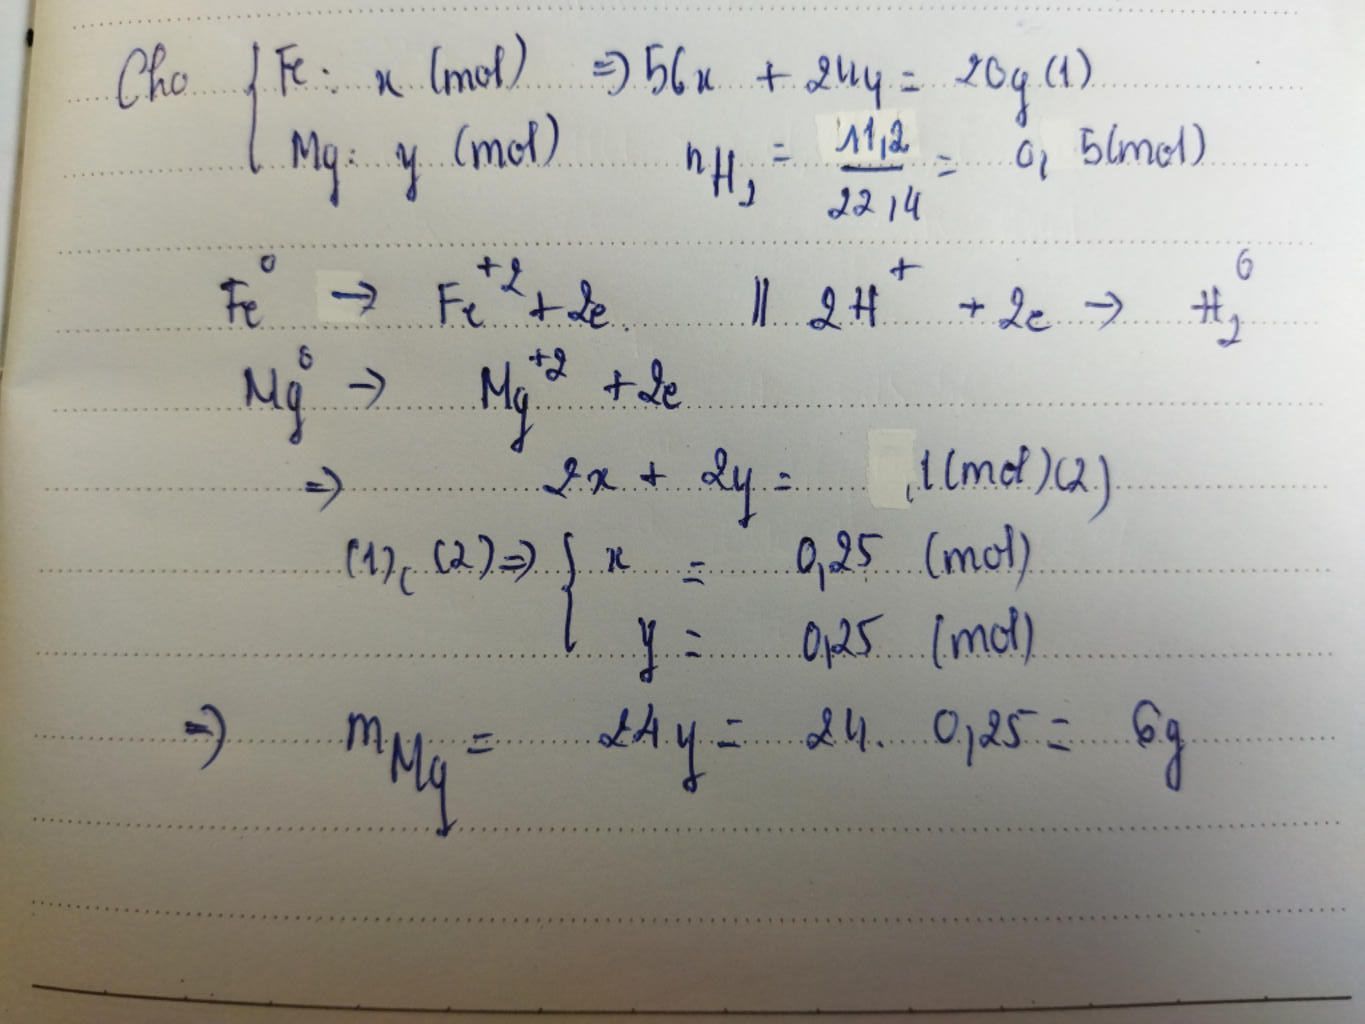 Cho { Fe: x (mol) => 56x + 24y = 20g (1)
Mg: y (mol) nH2 = 11,2/22,4 = 0,5(mol)
Fe⁰ → Fe⁺² + 2e. || 2H⁺ + 2e → H2⁰
Mg⁰ → Mg⁺² + 2e
=> 2x + 2y = ,1(mol)(2)
(1), (2) => { x = 0,25 (mol)
y = 0,25 (mol)
=> mMg = 24y = 24. 0,25 = 6g